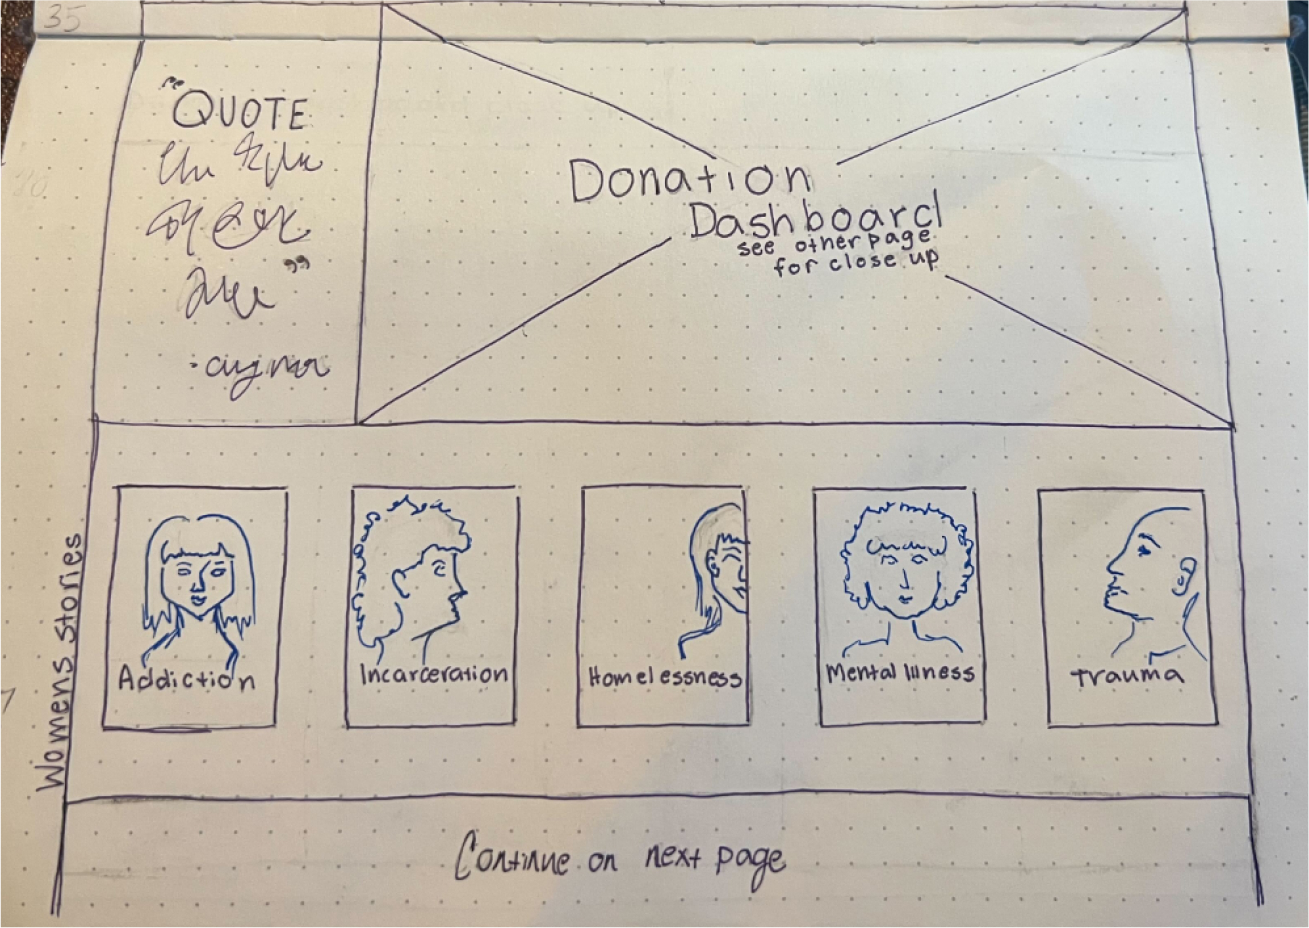 35
"QUOTE
"
Donation
Dashboard
see other page
for close up
Womens Stories
Addiction
Incarceration
Homelessness
Mental Illness
Trauma
Continue on next page